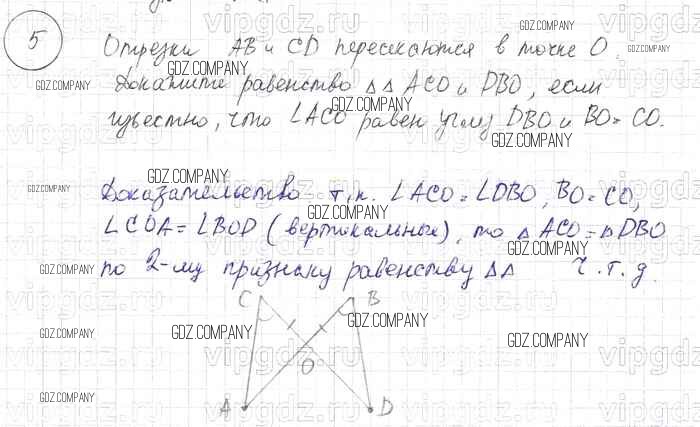 5
Отрезки АВ и CD пересекаются в точке О.
Докажите равенство ΔΔ ACO и DBO, если
известно, что ∠ACO равен углу DBO и BO = CO.
Доказательство т.к. ∠ACO = ∠DBO, BO = CO,
∠COA = ∠BOD (вертикальные), то Δ ACO = Δ DBO
по 2-му признаку равенству ΔΔ ч.т.д.
C B
O
A D
GDZ.COMPANY
vipgdz.ru